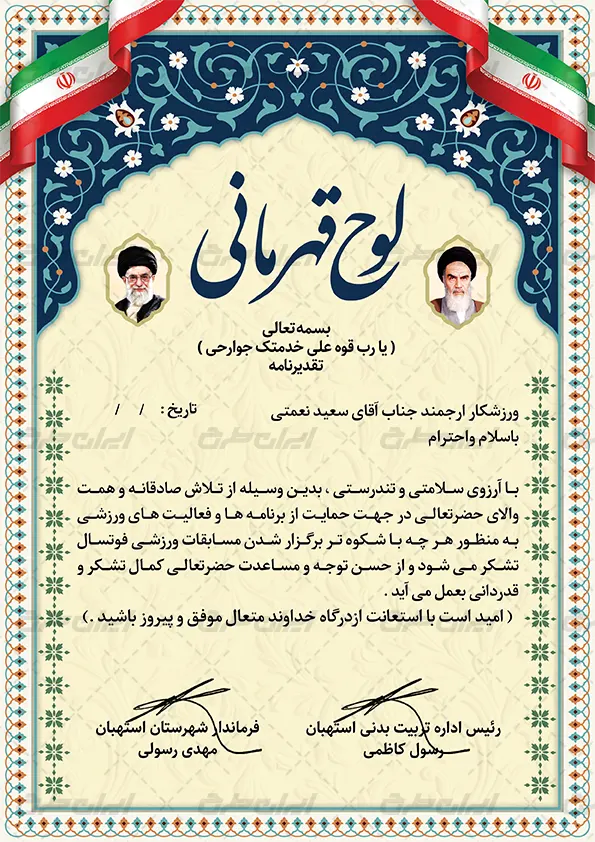 لوح قهرمانی
بسمه تعالی
( یا رب قوه علی خدمتک جوارحی )
تقدیرنامه
ورزشکار ارجمند جناب آقای سعید نعمتی
تاریخ : / /
باسلام واحترام
با آرزوی سلامتی و تندرستی ، بدین وسیله از تلاش صادقانه و همت
والای حضرتعالی در جهت حمایت از برنامه ها و فعالیت های ورزشی
به منظور هر چه با شکوه تر برگزار شدن مسابقات ورزشی فوتسال
تشکر می شود و از حسن توجه و مساعدت حضرتعالی کمال تشکر و
قدردانی بعمل می آید .
( امید است با استعانت ازدرگاه خداوند متعال موفق و پیروز باشید .)
رئیس اداره تربیت بدنی استهبان
رسول کاظمی
فرماندار شهرستان استهبان
مهدی رسولی
ایران طرح